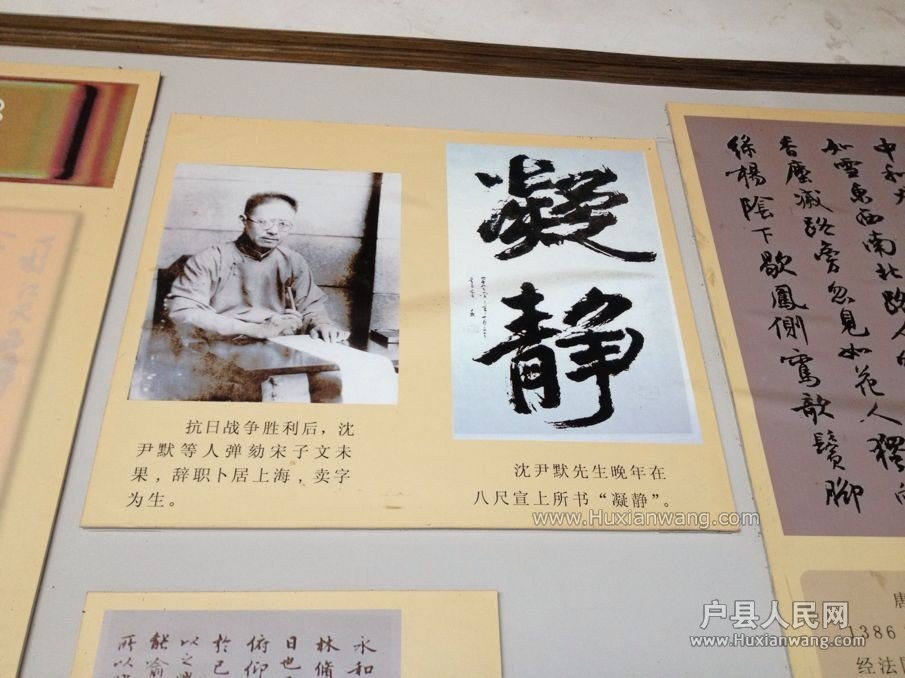 凝静
抗日战争胜利后，沈
尹默等人弹劾宋子文未
果，辞职卜居上海，卖字
为生。
沈尹默先生晚年在
八尺宣上所书“凝静”。
www.Huxianwang.com
如雪东西南北路人
香尘灭路旁忽见如花人独向
绿杨阴下歇凤侧鸾欹鬓脚
永和
林脩
日也
俯仰
於己
以之
能喻
所以
唐
1386
经法
户县人民网
www.Huxianwang.com